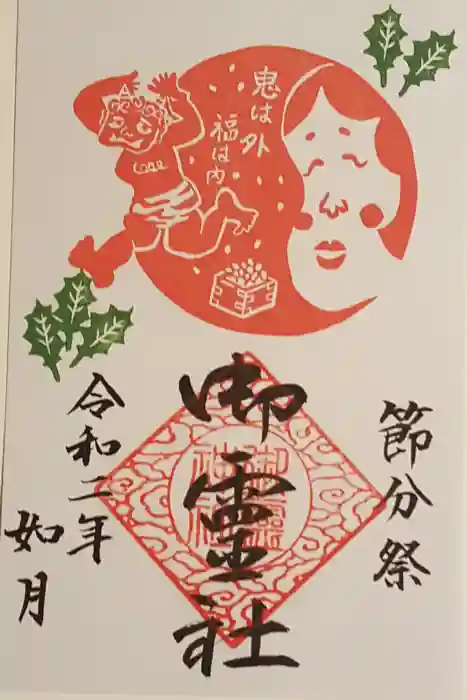 鬼は外
福は内
節分祭
御靈社
御靈
神社
令和二年
如月